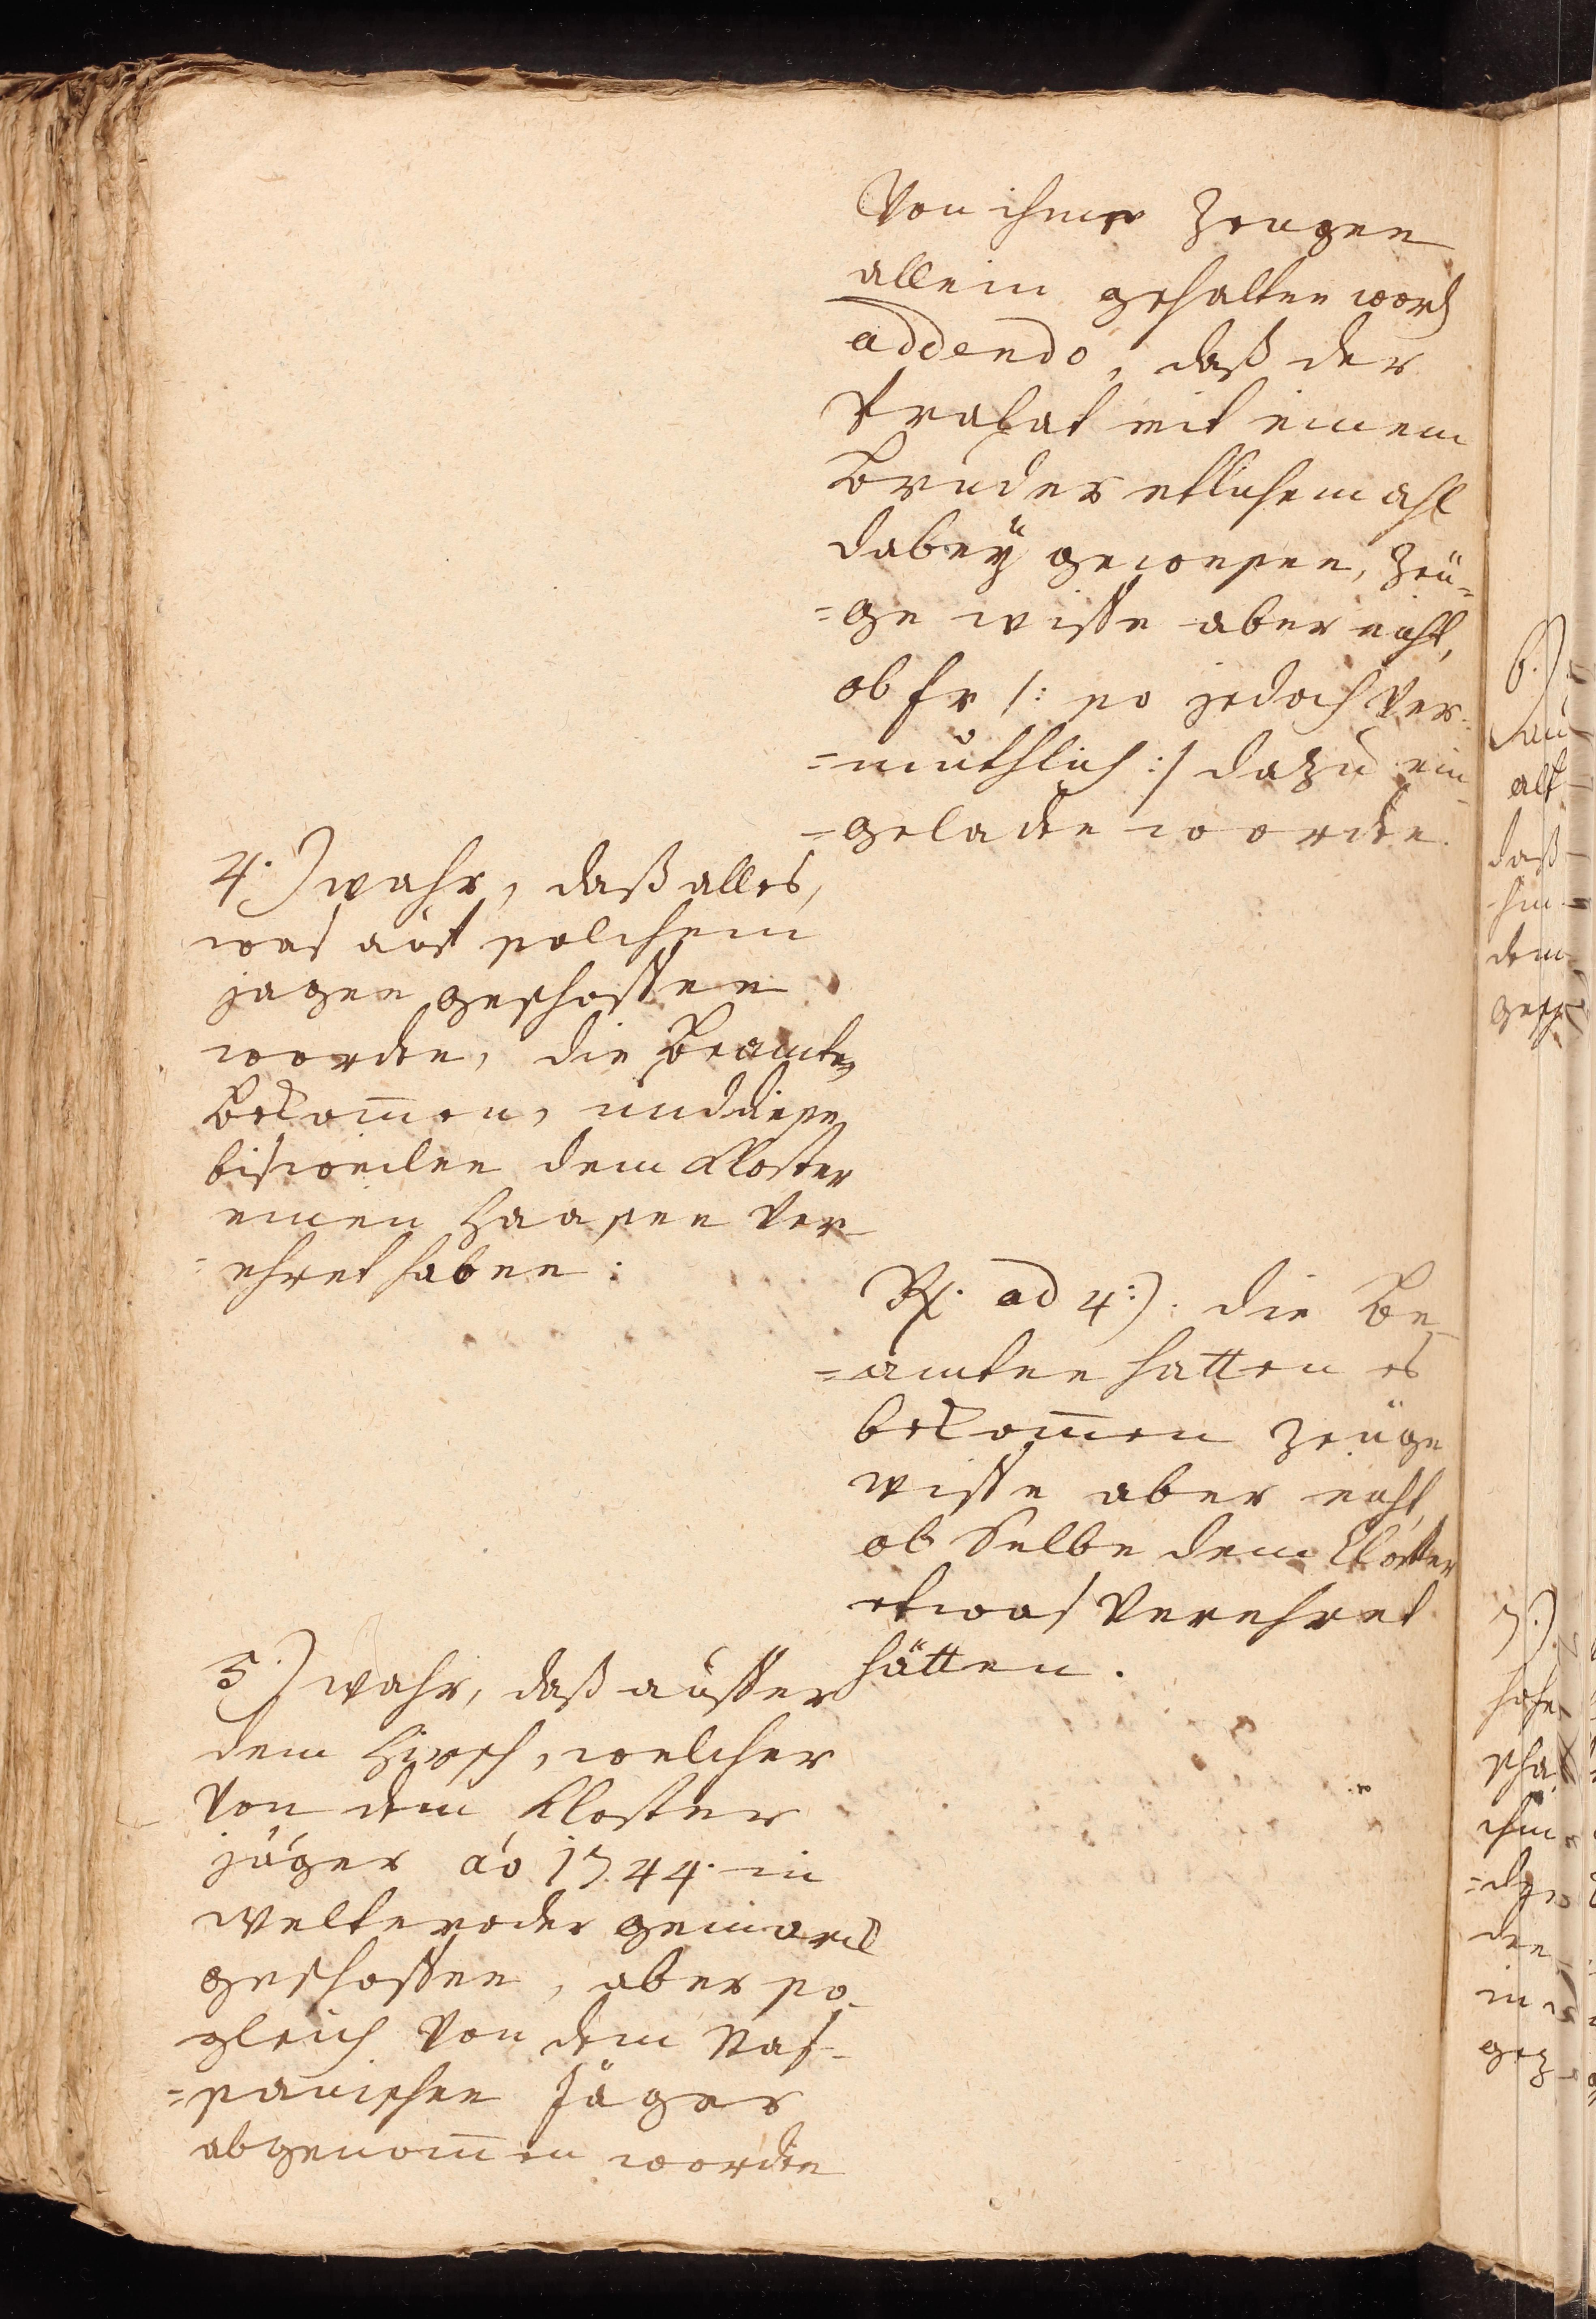 Von ihme Zeugen
allein gehalten word
addendo, daß der
Prælat mit einem
Bruder etlichemahl
dabeÿ gewesen, Zeu-
=ge wisse aber nicht,
ob Er /: so jedoch ver-
=muthlich :/ dazu ein-
=geladen worden.
4.) wahr, daß alles,
was auf solchem
jagen geschossen
worden, die Beamten
bekom̄en, und diese
bisweilen dem Kloster
einen Haasen ver-
=ehret haben:
Rx. ad 4:). die Be-
=amten hatten es
bekom̄en Zeuge
wisse aber nicht,
ob Selbe dem Closter
etwas verehret
hätten.
5.) wahr, daß ausser
dem Hirsch, welcher
von dem Kloster
jäger ao 1744. in
Welteroder gemarck
geschossen, aber so-
gleich von dem Nas-
=sauischen Jäger
abgenom̄en worden
6.)
alß
daß
dem
gesch
7.)